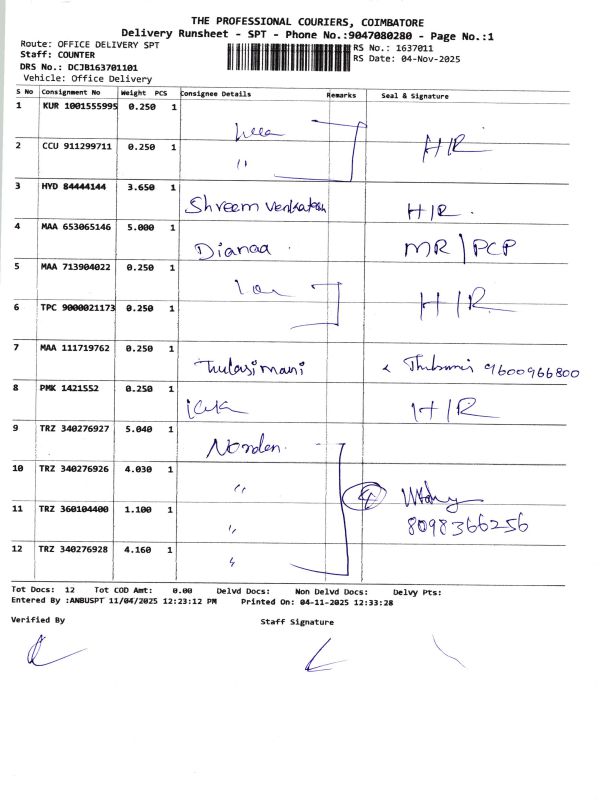 THE PROFESSIONAL COURIERS, COIMBATORE
Delivery Runsheet - SPT - Phone No.:9047080280 - Page No.:1
Route: OFFICE DELIVERY SPT
RS No.: 1637011
Staff: COUNTER
RS Date: 04-Nov-2025
DRS No.: DCJB163701101
Vehicle: Office Delivery
S No Consignment No Weight PCS Consignee Details Remarks Seal & Signature
1 KUR 1001555995 0.250 1
2 CCU 911299711 0.250 1 " H/R
3 HYD 84444144 3.650 1 Shreem Venkatesh H/R.
4 MAA 653065146 5.000 1 Dianaa MR/PCP
5 MAA 713904022 0.250 1
6 TPC 9000021173 0.250 1 H/R
7 MAA 111719762 0.250 1 Thulasimani 9600966800
8 PMK 1421552 0.250 1 H/R
9 TRZ 340276927 5.040 1 Norden.
10 TRZ 340276926 4.030 1 " 4
11 TRZ 360104400 1.100 1 " 8098366256
12 TRZ 340276928 4.160 1 "
Tot Docs: 12 Tot COD Amt: 0.00 Delvd Docs: Non Delvd Docs: Delvy Pts:
Entered By :ANBUSPT 11/04/2025 12:23:12 PM Printed On: 04-11-2025 12:33:28
Verified By Staff Signature